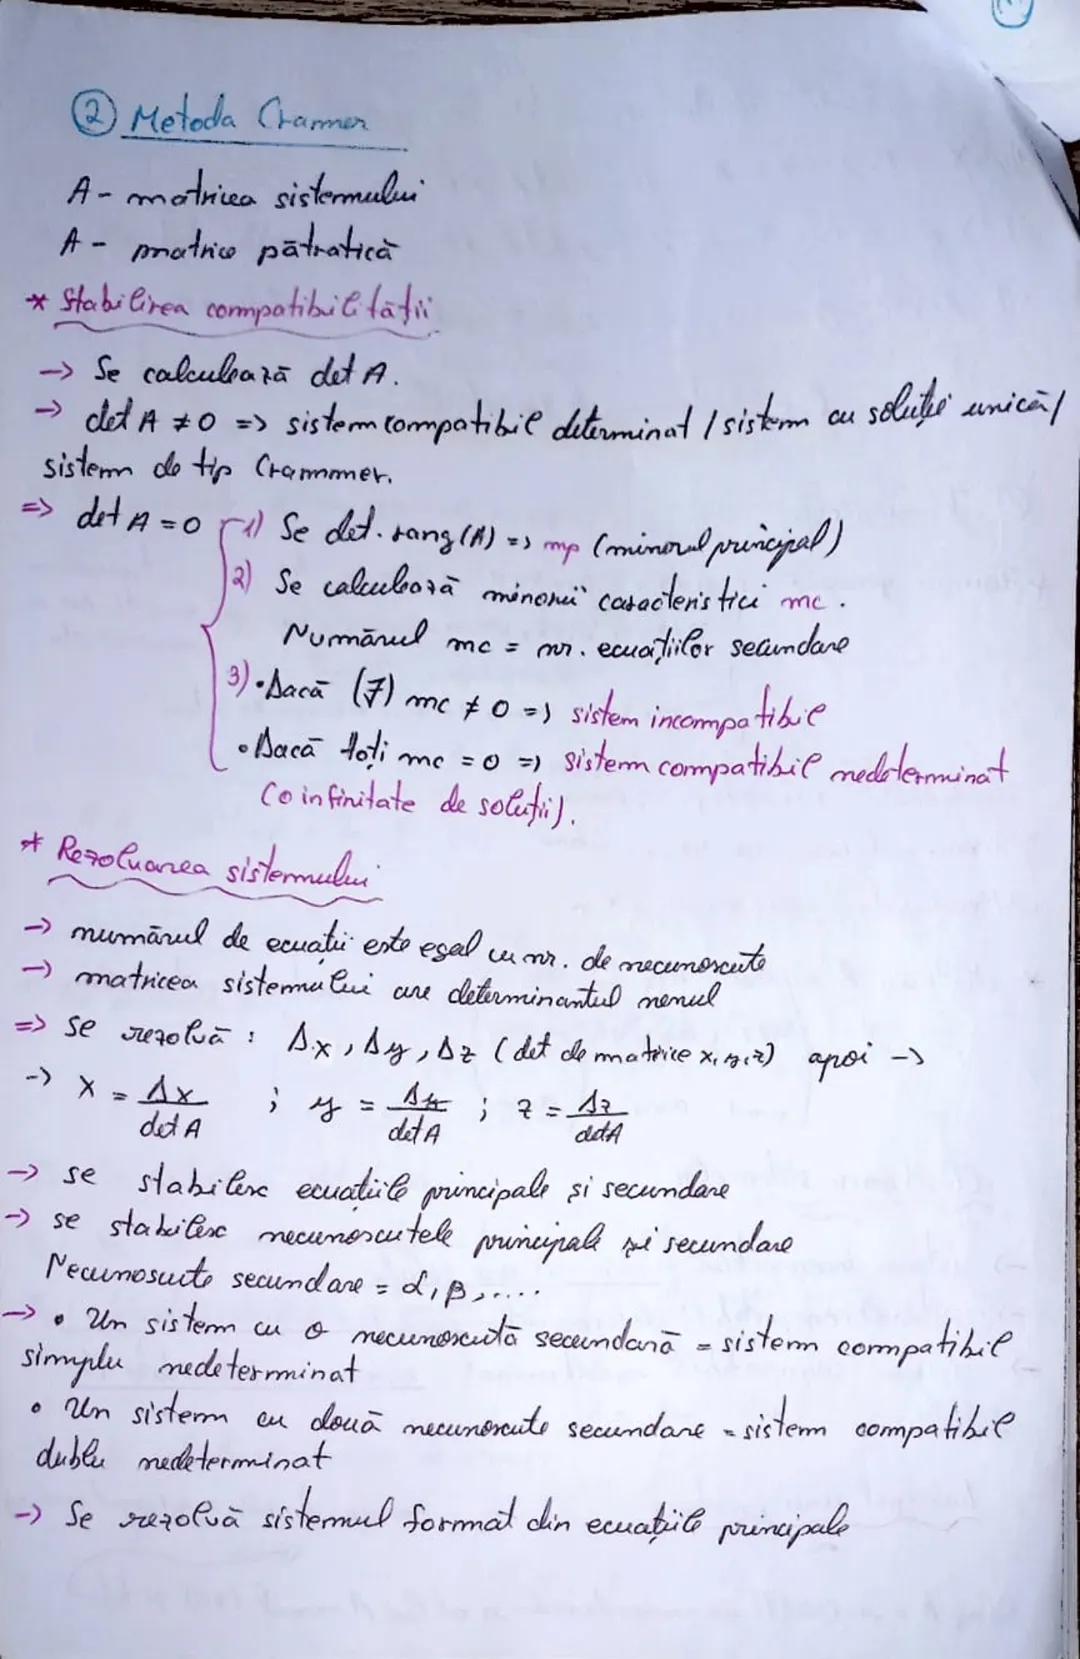 ② Metoda Crammer
A - matricea sistemului
A - matrice pătratică
* Stabilirea compatibilității
-> Se calculează det A.
-> det A ≠ 0 => sistem compatibil determinat / sistem cu soluție unică /
sistem de tip Crammer.
=> det A = 0 1) Se det. rang(A) => mp (minorul principal)
2) Se calculează minorii caracteristici mc.
Numărul mc = nr. ecuațiilor secundare
3) • Dacă (∃) mc ≠ 0 => sistem incompatibil
• Dacă toți mc = 0 => sistem compatibil nedeterminat
(o infinitate de soluții).
* Rezolvarea sistemului
-> numărul de ecuații este egal cu nr. de necunoscute
-> matricea sistemului are determinantul nenul
=> se rezolvă : Δx, Δy, Δz (det de matrice x, y, z) apoi ->
-> x = Δx / det A ; y = Δy / det A ; z = Δz / det A
-> se stabilesc ecuațiile principale și secundare
-> se stabilesc necunoscutele principale și secundare
Necunoscute secundare = α, β, ....
-> • Un sistem cu o necunoscută secundară = sistem compatibil
simplu nedeterminat
• Un sistem cu două necunoscute secundare = sistem compatibil
dublu nedeterminat
-> Se rezolvă sistemul format din ecuațiile principale